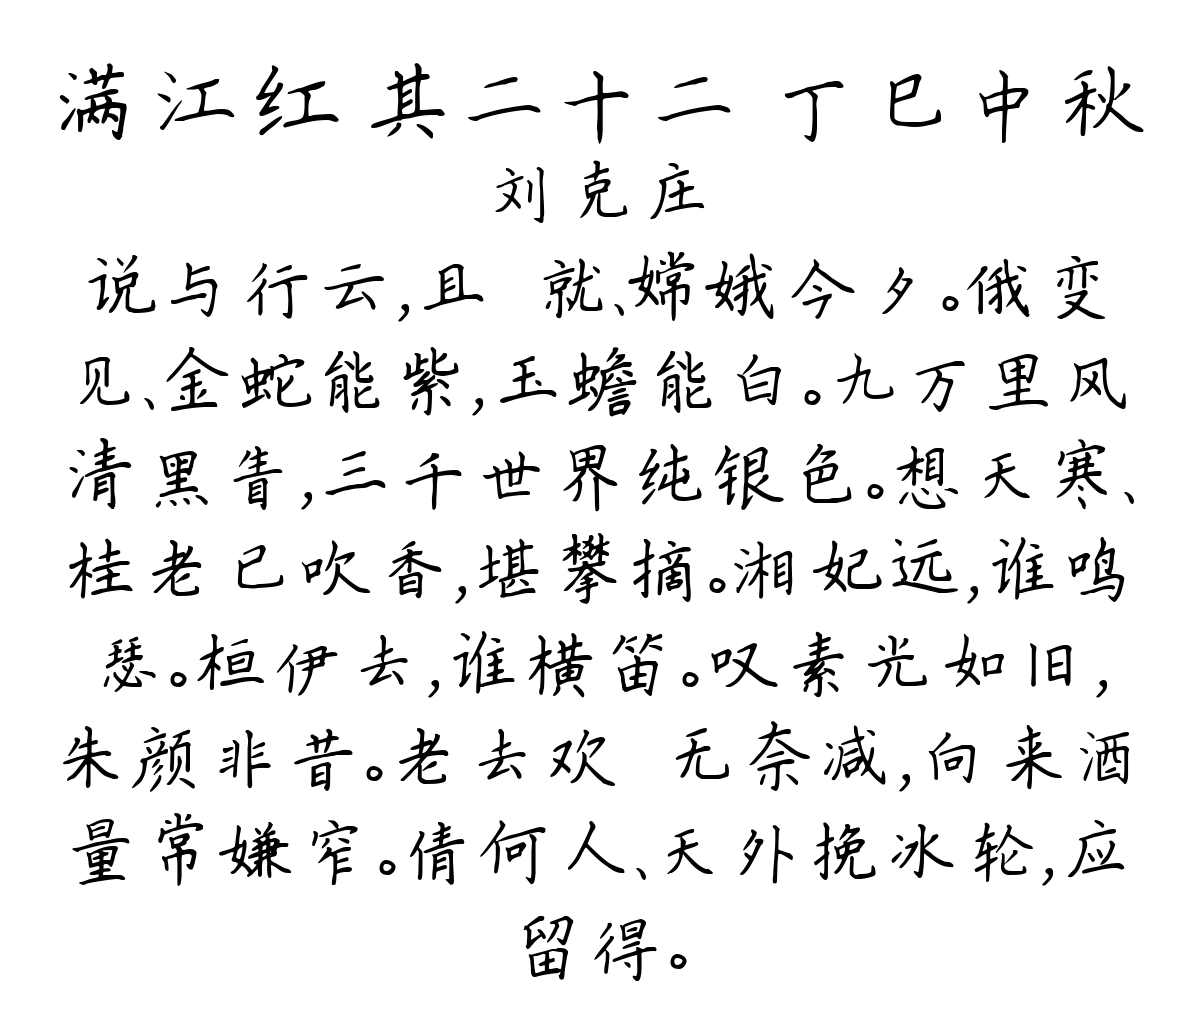 满江红 其二十二 丁巳中秋
刘克庄
说与行云,且 就、嫦娥今夕。俄变
见、金蛇能紫,玉蟾能白。九万里风
清黑眚,三千世界纯银色。想天寒、
桂老已吹香,堪攀摘。湘妃远,谁鸣
瑟。桓伊去,谁横笛。叹素光如旧,
朱颜非昔。老去欢 无奈减,向来酒
量常嫌窄。倩何人、天外挽冰轮,应
留得。